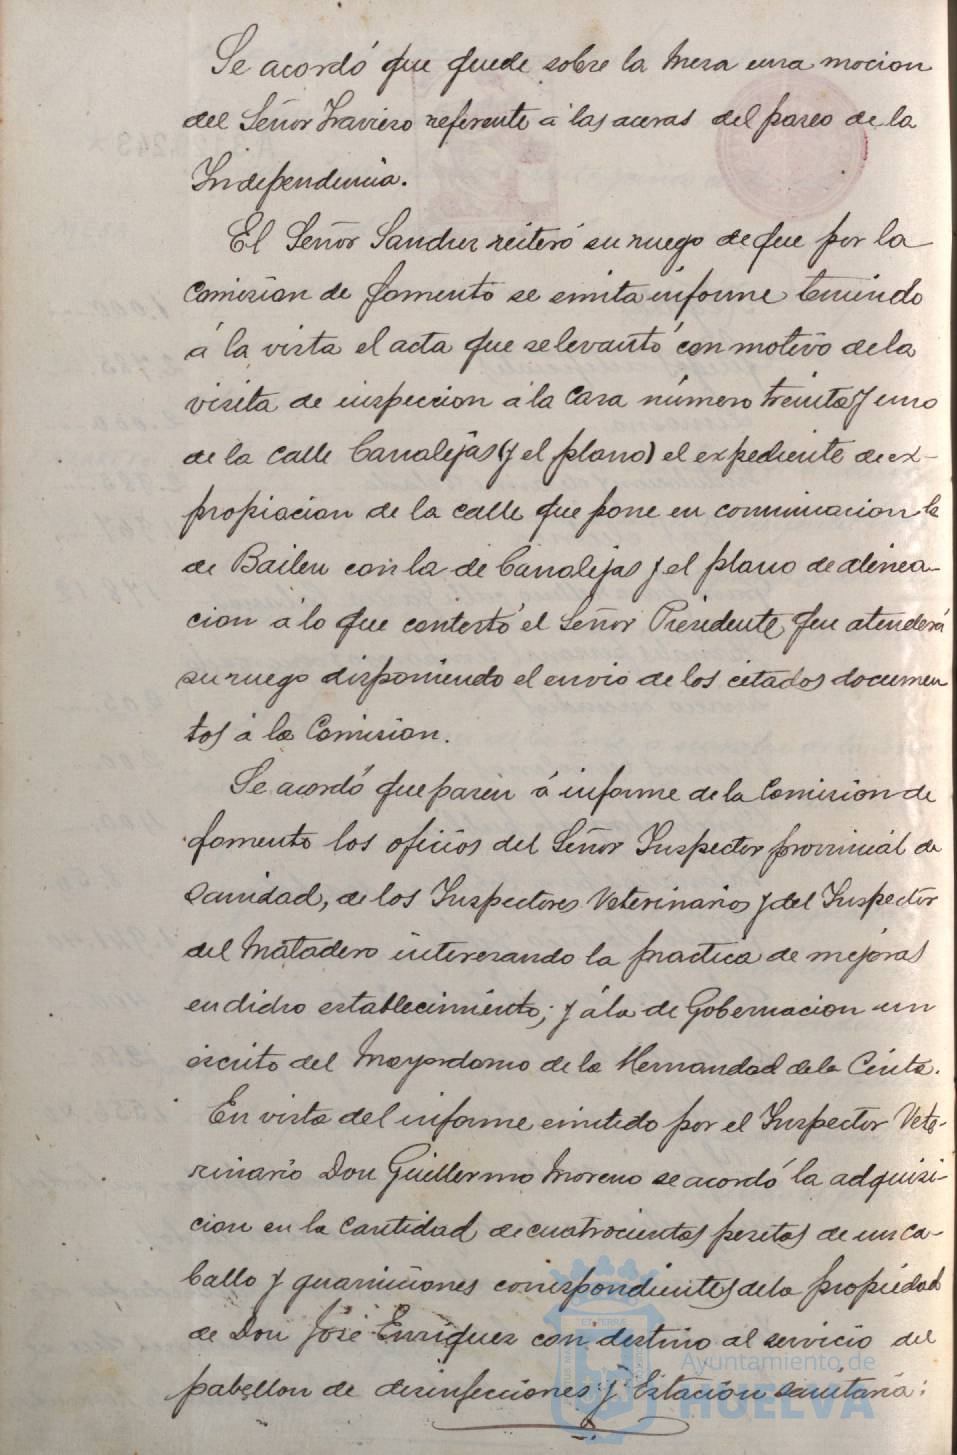 Se acordó que quede sobre la mesa una mocion
del Señor Travieso referente á las aceras del paseo de la
Independencia.
El Señor Sanchez reiteró su ruego de que por la
Comision de fomento se emita informe teniendo
á la vista el acta que se levantó con motivo de la
visita de inspeccion á la casa número treinta y uno
de la calle Canalejas (y el plano) el expediente de ex-
propiacion de la calle que pone en comunicacion la
de Bailen con la de Canalejas y el plano de alinea-
cion á lo que contestó el Señor Presidente que atenderá
su ruego disponiendo el envio de los citados documen
tos á la Comision.
Se acordó que pasen á informe de la Comision de
fomento los oficios del Señor Inspector provincial de
Sanidad, de los Inspectores Veterinarios y del Inspector
del Matadero interesando la practica de mejoras
en dicho establecimiento; y á la de Gobernacion un
escrito del Mayordomo de la Hermandad de la Cinta.
En vista del informe emitido por el Inspector Vete-
rinario Don Guillermo Moreno se acordó la adquisi-
cion en la cantidad de cuatrocientas pesetas de un ca-
ballo y guarniciones correspondientes de la propiedad
de Don José Enriquez con destino al servicio del
pabellon de desinfecciones y Estación sanitaria:
Ayuntamiento de
HUELVA